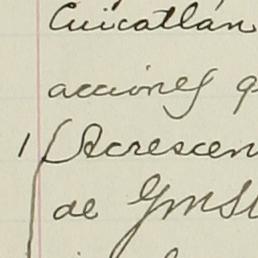 Cuicatlán
acciones q
1 (Acrescen
de GMSt